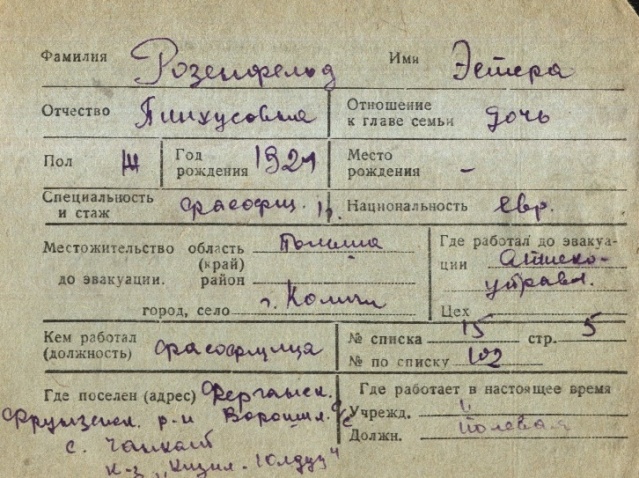 Фамилия Розенфельд Имя Эстера
Отчество Пинхусовна Отношение к главе семьи дочь
Пол Ж Год рождения 1921 Место рождения -
Специальность и стаж фасофщ. Национальность евр.
Местожительство область (край) Польша
до эвакуации. район
город, село г.
Где работал до эвакуации
управл.
Цех
Кем работал (должность) фасофщица
№ списка 15 стр. 5
№ по списку 102
Где поселен (адрес) Ферганск.
Фрунзенск. р-н Ворошил. с/с
с.
к-з „Кизил-Юлдуз"
Где работает в настоящее время
Учрежд. "
Должн. полевая